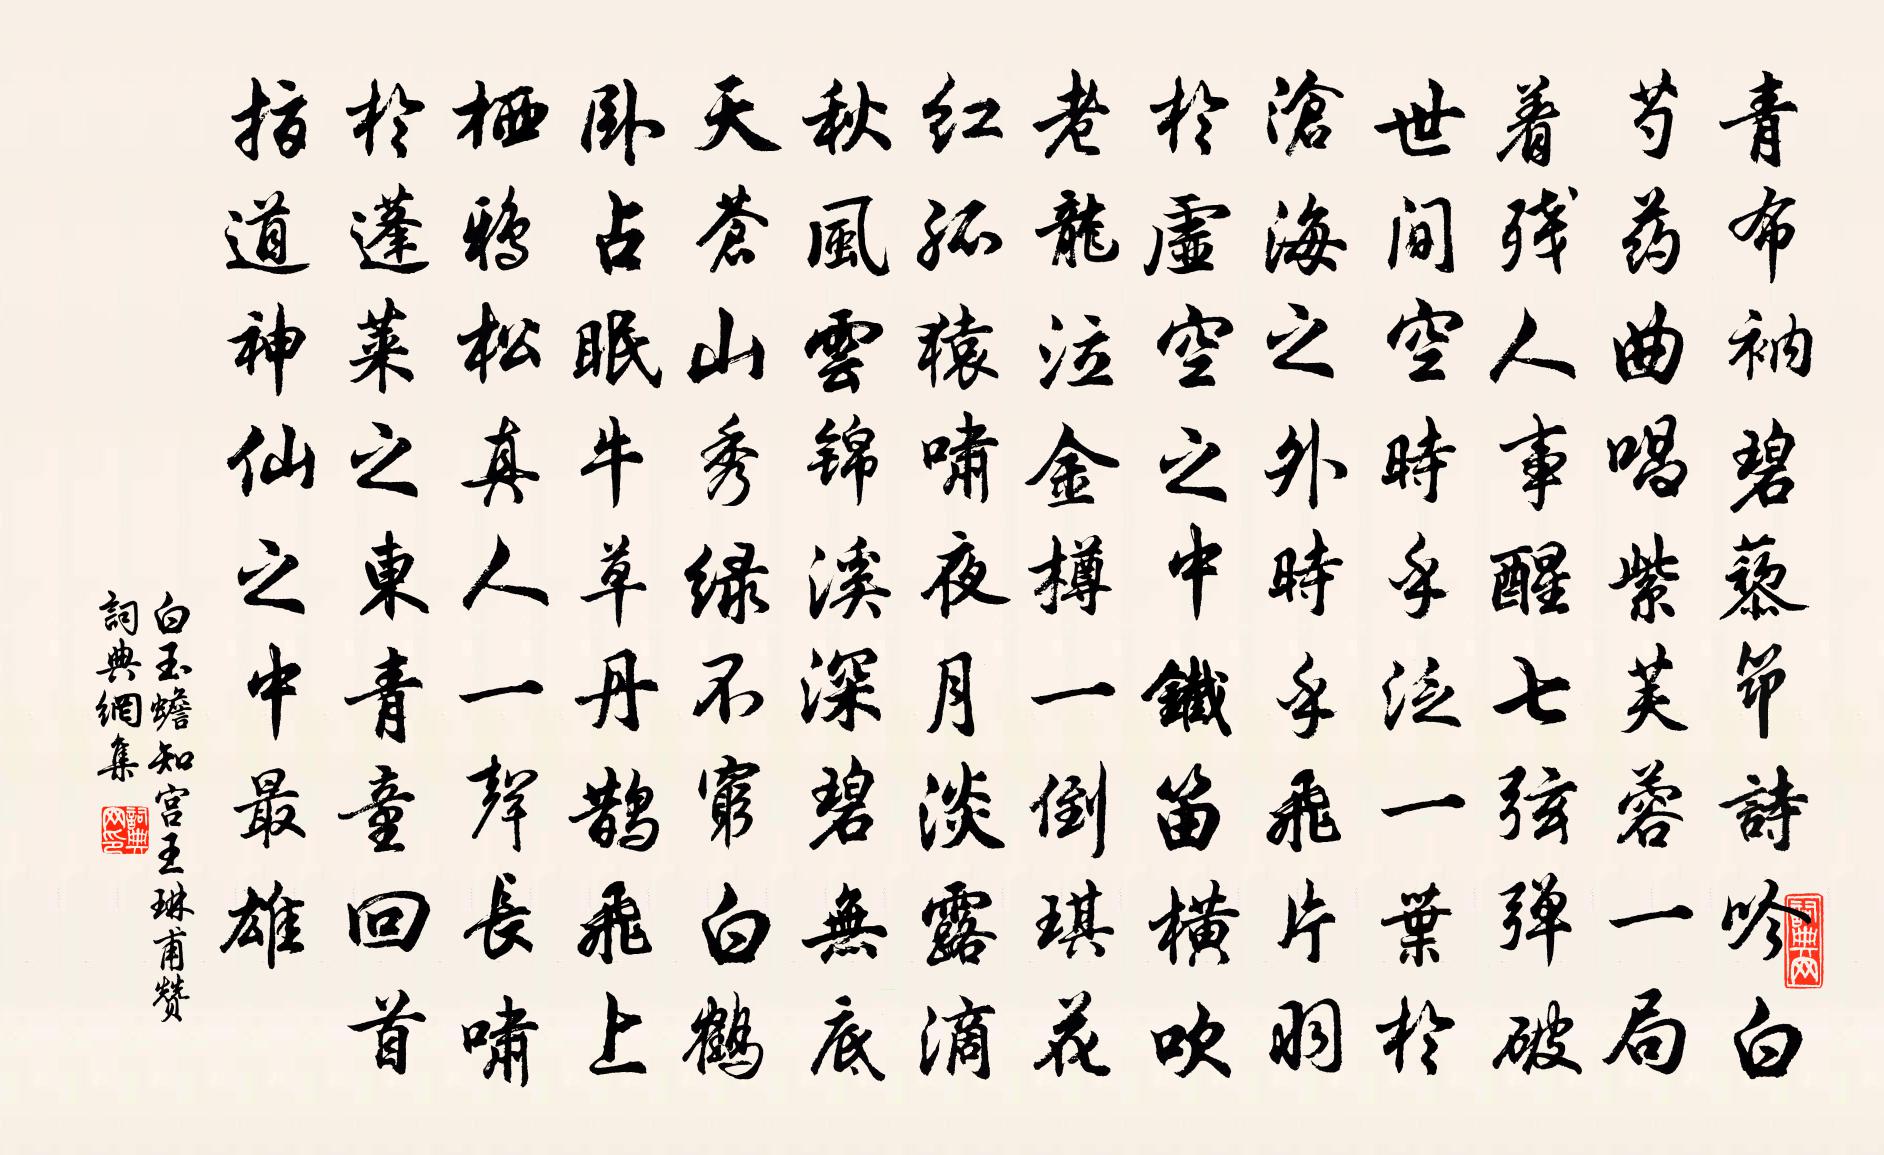 青布衲碧藜笻詩吟白
芍药曲唱紫芙蓉一局
着残人事醒七弦弹破
世间空時乎泛一葉於
滄海之外時乎飛片羽
於虛空之中鐵笛横吹
老龍泣金樽一倒琪花
红孤猿啸夜月淡露滴
秋風雲锦溪深碧無底
天蒼山秀绿不窮白鶴
卧占眠牛草丹鹊飛上
栖鴉松真人一聲長啸
於蓬莱之東青童回首
指道神仙之中最雄
白玉蟾知宫王琳甫赞
詞典網集